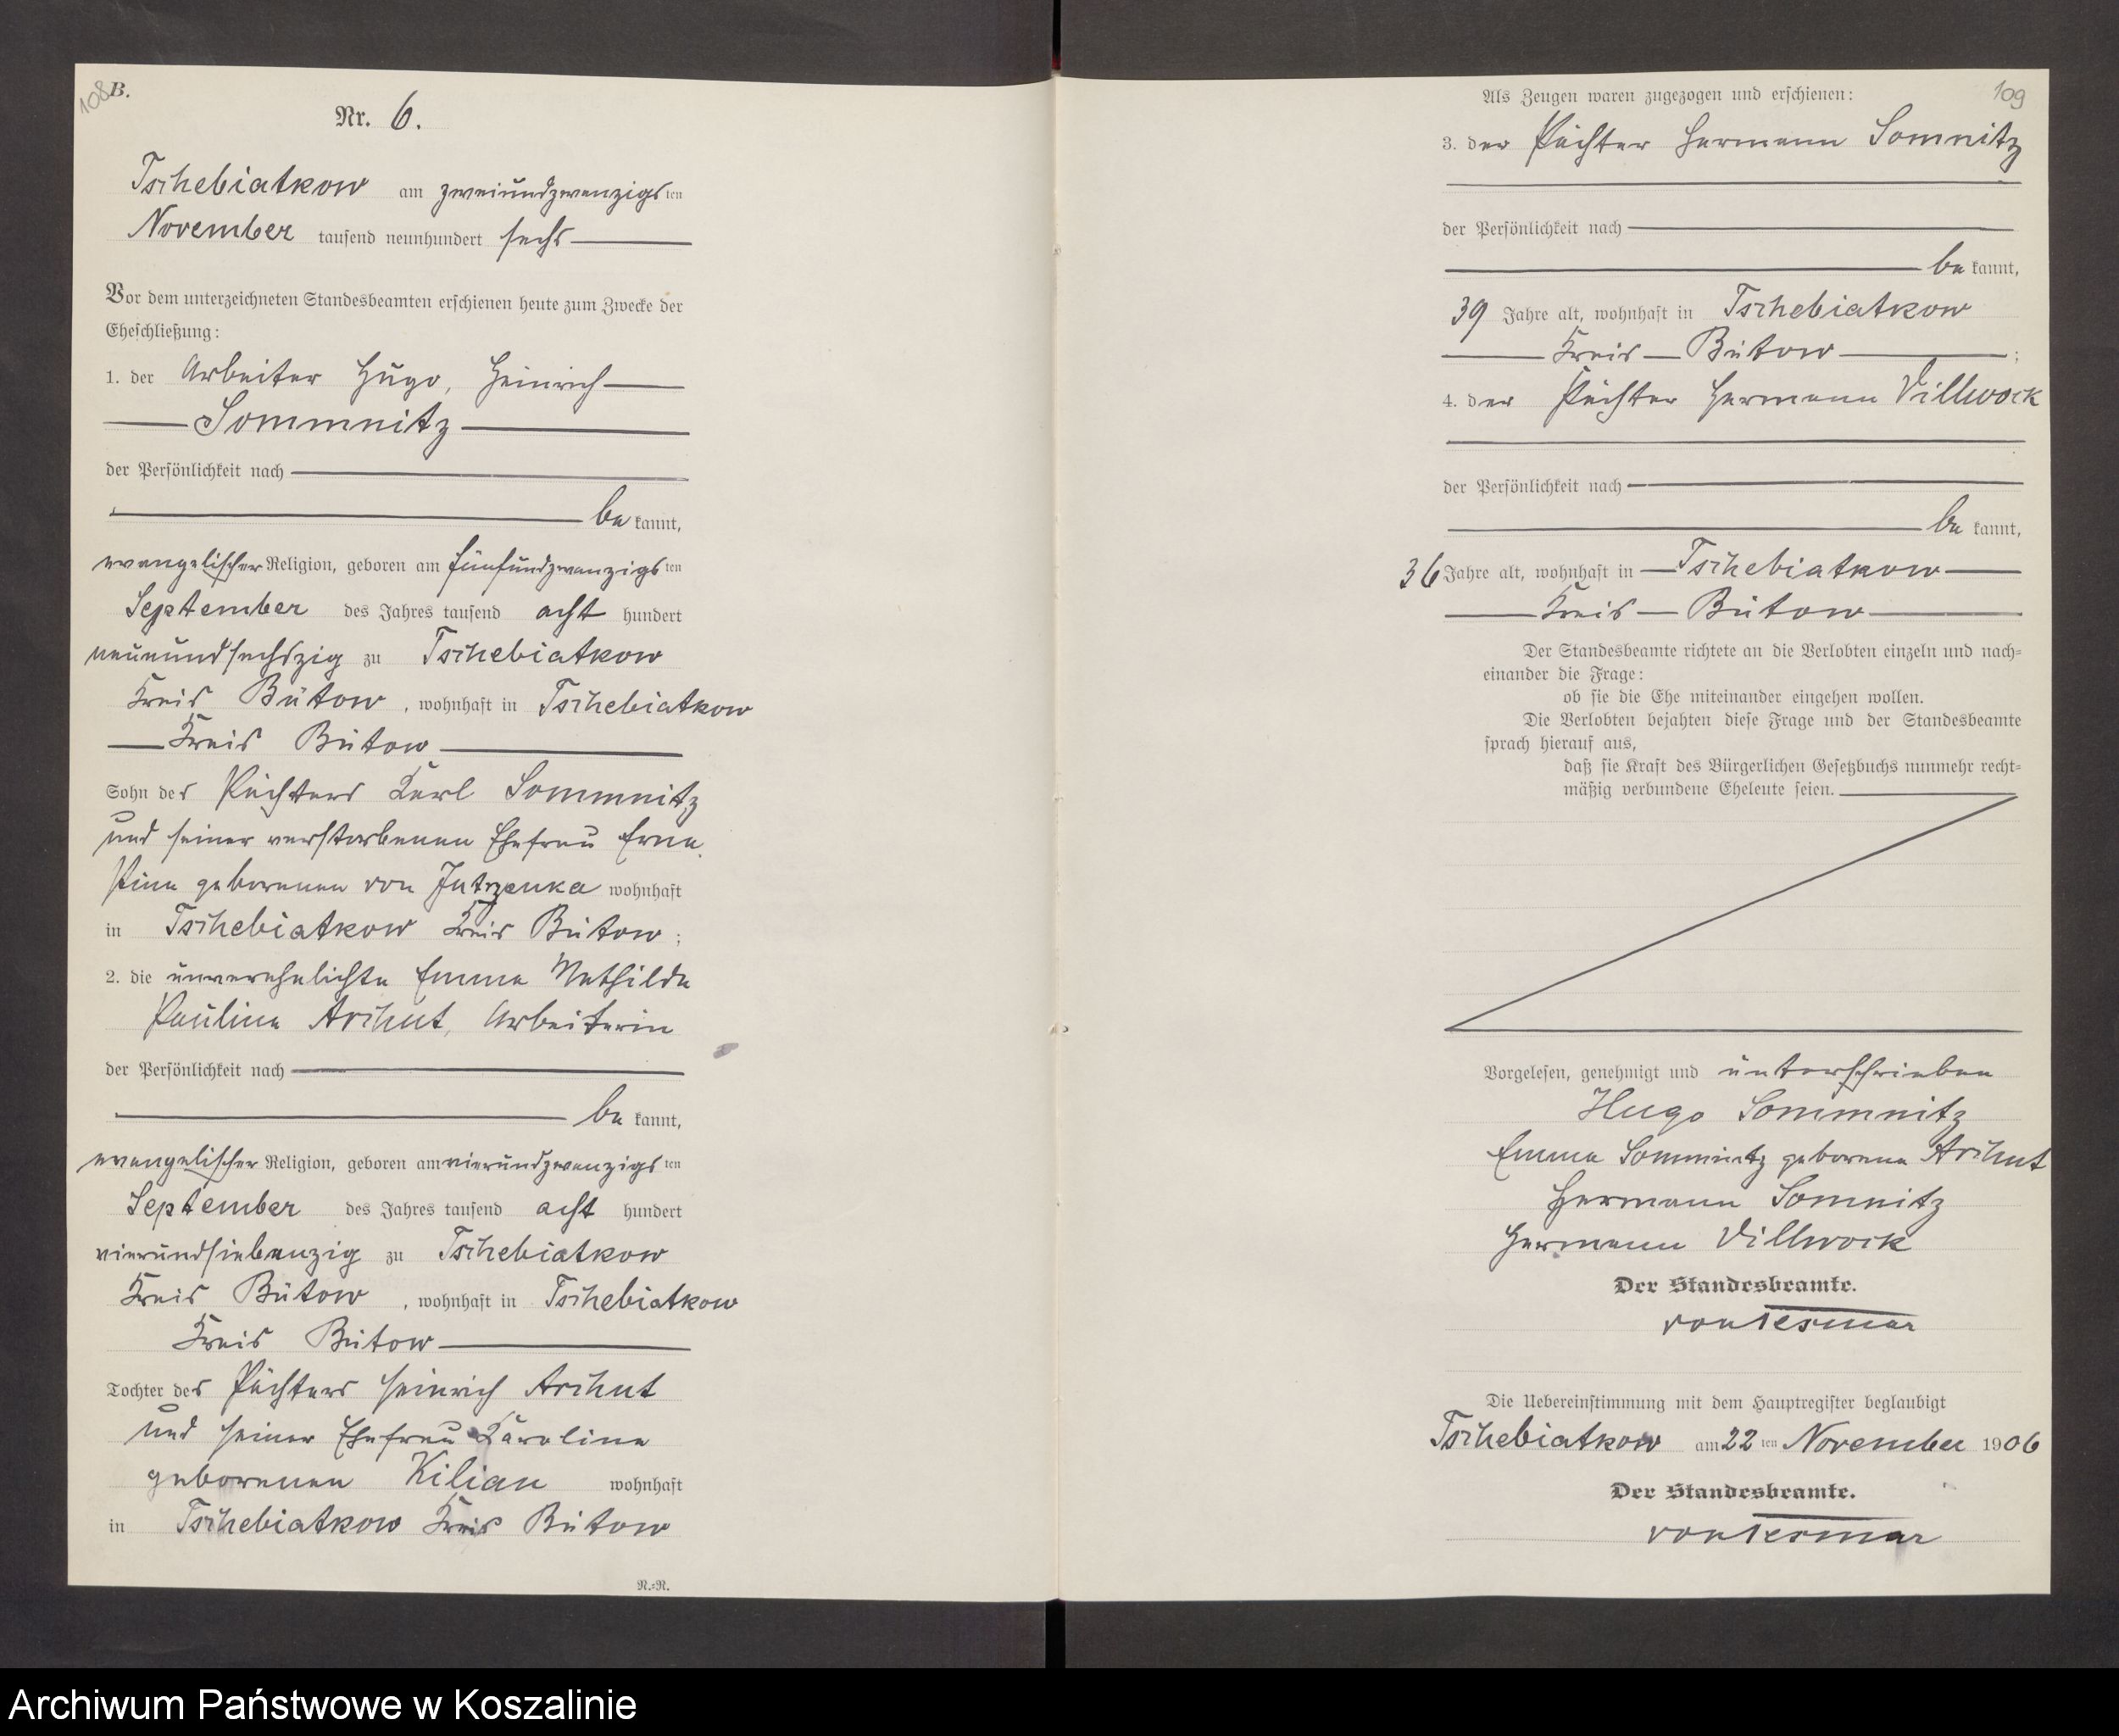 108
B.
Nr. 6.
Tschebiatkow am zweiundzwanzigsten
November tausend neunhundert sechs
Vor dem unterzeichneten Standesbeamten erschienen heute zum Zwecke der
Eheschließung:
1. der Arbeiter Hugo, Heinrich
Sommnitz
der Persönlichkeit nach
be kannt,
evangelischer Religion, geboren am fünfundzwanzigsten
September des Jahres tausend acht hundert
neunundsechszig zu Tschebiatkow
Kreis Bütow, wohnhaft in Tschebiatkow
Kreis Bütow
Sohn des Pächters Karl Sommnitz
und seiner verstorbenen Ehefrau Erne-
stine geborenen von Jutrzenka wohnhaft
in Tschebiatkow Kreis Bütow;
2. die unverehelichte Emma Mathilde
Pauline Aschut, Arbeiterin
der Persönlichkeit nach
be kannt,
evangelischer Religion, geboren am vierundzwanzigsten
September des Jahres tausend acht hundert
vierundsiebenzig zu Tschebiatkow
Kreis Bütow, wohnhaft in Tschebiatkow
Kreis Bütow
Tochter des Pächters Heinrich Aschut
und seiner Ehefrau Karoline
geborenen Kilian wohnhaft
in Tschebiatkow Kreis Bütow
R.=R.
109
Als Zeugen waren zugezogen und erschienen:
3. der Pächter Hermann Somnitz
der Persönlichkeit nach
be kannt,
39 Jahre alt, wohnhaft in Tschebiatkow
Kreis Bütow;
4. der Pächter Hermann Villwock
der Persönlichkeit nach
be kannt,
36 Jahre alt, wohnhaft in Tschebiatkow
Kreis Bütow
Der Standesbeamte richtete an die Verlobten einzeln und nach=
einander die Frage:
ob sie die Ehe miteinander eingehen wollen.
Die Verlobten bejahten diese Frage und der Standesbeamte
sprach hierauf aus,
daß sie Kraft des Bürgerlichen Gesetzbuchs nunmehr recht=
mäßig verbundene Eheleute seien.
Vorgelesen, genehmigt und unterschrieben
Hugo Sommnitz
Emma Sommnitz geborene Aschut
Hermann Somnitz
Hermann Villwock
Der Standesbeamte.
von Tesmar
Die Uebereinstimmung mit dem Hauptregister beglaubigt
Tschebiatkow am 22ten November 1906
Der Standesbeamte.
von Tesmar
Archiwum Państwowe w Koszalinie